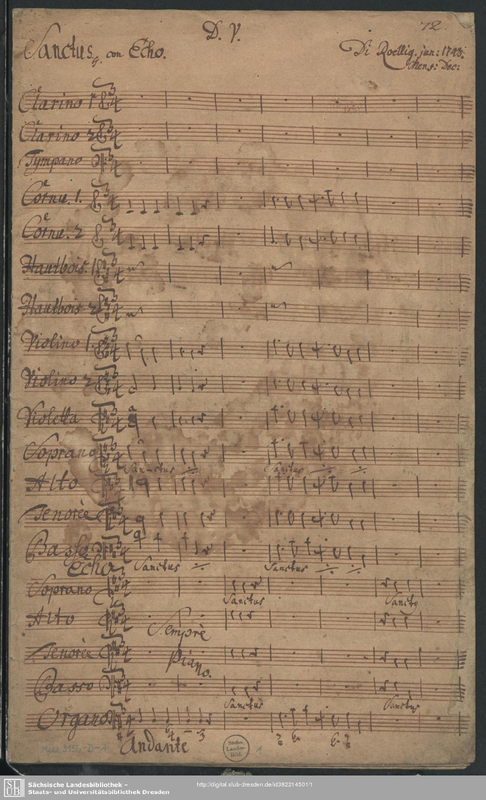 D. V.
Sanctus con Echo.
Di Roellig. jun: 1743.
Mens: Dec:
Clarino 1
Clarino 2
Tympano
Corne. 1.
Corne. 2
Hautbois 1
Hautbois 2
Violino 1.
Violino 2
Violetta
Soprano
Sanctus
Sanctus
Alto
Tenore
Basso
Sanctus
Sanctus
Echo
Soprano
Sanctus
Sanctus
Alto
Sempre
Tenore
piano.
Basso
Sanctus
Sanctus
Organo
Andante
1
Sächsische Landesbibliothek -
Staats- und Universitätsbibliothek Dresden
http://digital.slub-dresden.de/id382214501/1